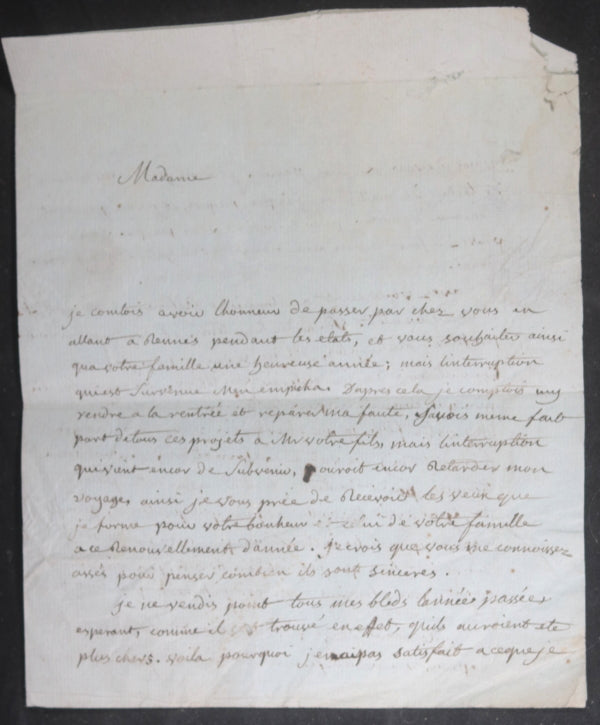 Madame
je comtois avoir lhonneur de passer par chez vous en
allant a Rennes pendant les etats, et vous souhaiter ainsi
qua votre famille une heureuse année; mais linterruption
qui est survenue m'en empecha. Dapres cela je comptois my
rendre a la rentrée et reparer ma faute, Javois meme fait
part de tous ces projets a Mr votre fils, mais linterruption
qui vient encor de subvenir, pouroit encor Retarder mon
voyage, ainsi je vous prie de Recevoir les veux que
je forme pour votre bonheur et celui de votre famille
a ce Renouvellement d'année. je crois que vous me connoissez
assés pour penser combien ils sont sinceres.
je ne vendis point tous mes bleds lannée passée,
esperant, comme il trouvé en effet, quils auroient eté
plus chers. voila pourquoi je nai pas satisfait a ce que je